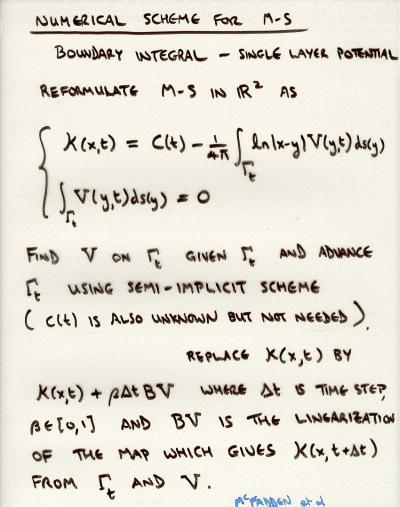 NUMERICAL SCHEME FOR M-S
BOUNDARY INTEGRAL – SINGLE LAYER POTENTIAL
REFORMULATE M-S IN ℝ² AS
K(x,t) = C(t) - 1/4π ∫_Γt ln|x-y| V(y,t) ds(y)
∫_Γt V(y,t) ds(y) = 0
FIND V ON Γt GIVEN Γt AND ADVANCE
Γt USING SEMI-IMPLICIT SCHEME
( C(t) IS ALSO UNKNOWN BUT NOT NEEDED ).
REPLACE K(x,t) BY
K(x,t) + βΔt BV WHERE Δt IS TIME STEP,
β∈[0,1] AND BV IS THE LINEARIZATION
OF THE MAP WHICH GIVES K(x,t+Δt)
FROM Γt AND V.
McFADDEN et al